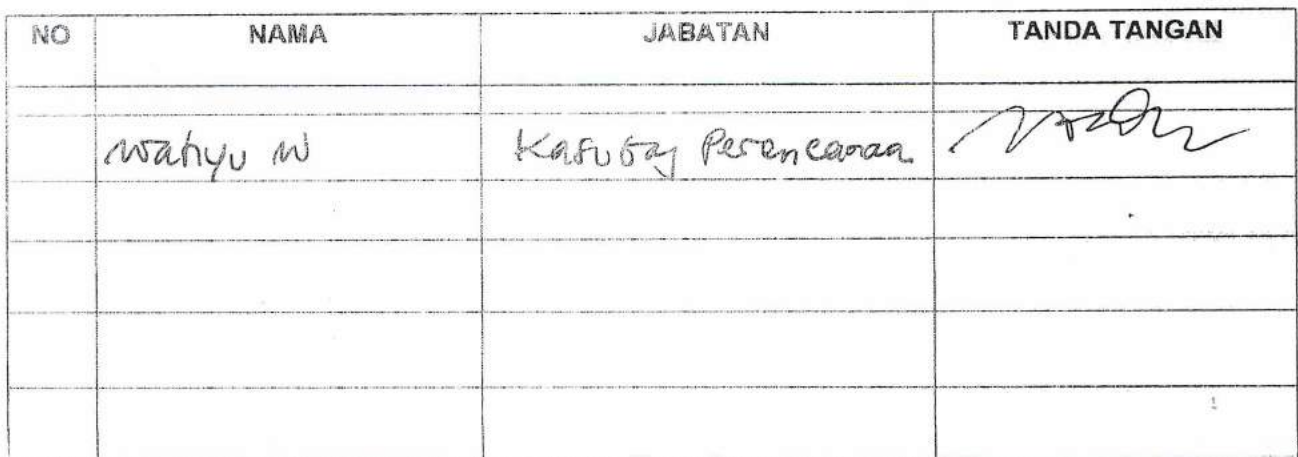 NO NAMA JABATAN TANDA TANGAN
Wahyu W Kasubag Perencanaan